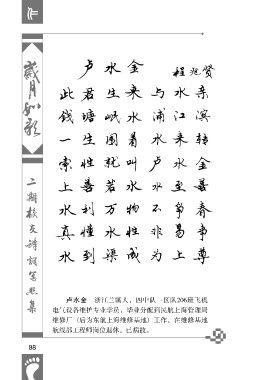 作
岁月如歌
二期校友诗词写照集
卢水金
程兆贤
此君生来与水亲
钱塘岷水浦江滨
一生围着水来转
索性就叫卢水金
上善若水水至善
水利万物不争春
真懂水性非易事
水到渠成为上尊
卢水金 浙江兰溪人,四中队一区队206班飞机
电气仪器维护专业学员,毕业分配到民航上海管理局
维修厂(后为东航上海维修基地)工作,在维修基地
航线部工程师岗位退休,已病故。
86